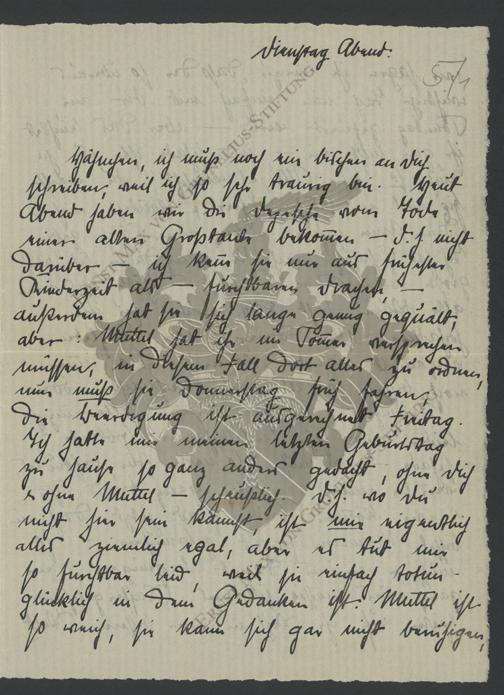 Dienstag Abend.
57/1
Hähnchen, ich muß noch ein bischen an dich
schreiben, weil ich so sehr traurig bin. Heut
Abend haben wir die Depesche vom Tode
einer alten Großtante bekommen — d. h. nicht
darüber — ich kenn sie nur aus frühester
Kinderzeit als furchtbaren Drachen, —
außerdem hat sie sich lange genug gequält,
aber: Muttel hat ihr im Sommer versprechen
müssen, in diesem Fall dort alles zu ordnen,
nun muß sie Donnerstag früh fahren,
die Beerdigung ist ausgerechnet Freitag.
Ich hatte mir meinen letzten Geburtstag
zu Hause so ganz anders gedacht, ohne dich
u ohne Muttel — scheußlich. D. h. wo du
nicht hier sein kannst, ist mir eigentlich
alles ziemlich egal, aber es tut mir
so furchtbar leid, weil sie einfach totun-
glücklich in dem Gedanken ist. Muttel ist
so weich, sie kann sich gar nicht beruhigen,